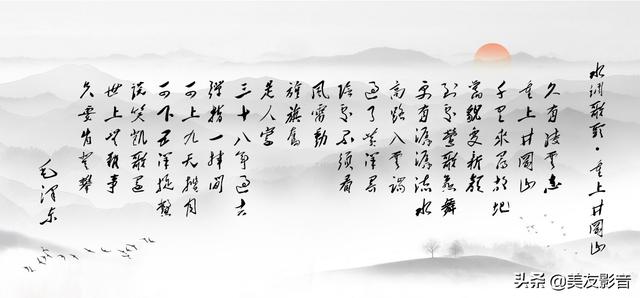 水调歌头·重上井冈山
久有凌云志
重上井冈山
千里来寻故地
旧貌变新颜
到处莺歌燕舞
更有潺潺流水
高路入云端
过了黄洋界
险处不须看
风雷动
旌旗奋
是人寰
三十八年过去
弹指一挥间
可上九天揽月
可下五洋捉鳖
谈笑凯歌还
世上无难事
只要肯登攀
毛泽东
头条 @美友影音